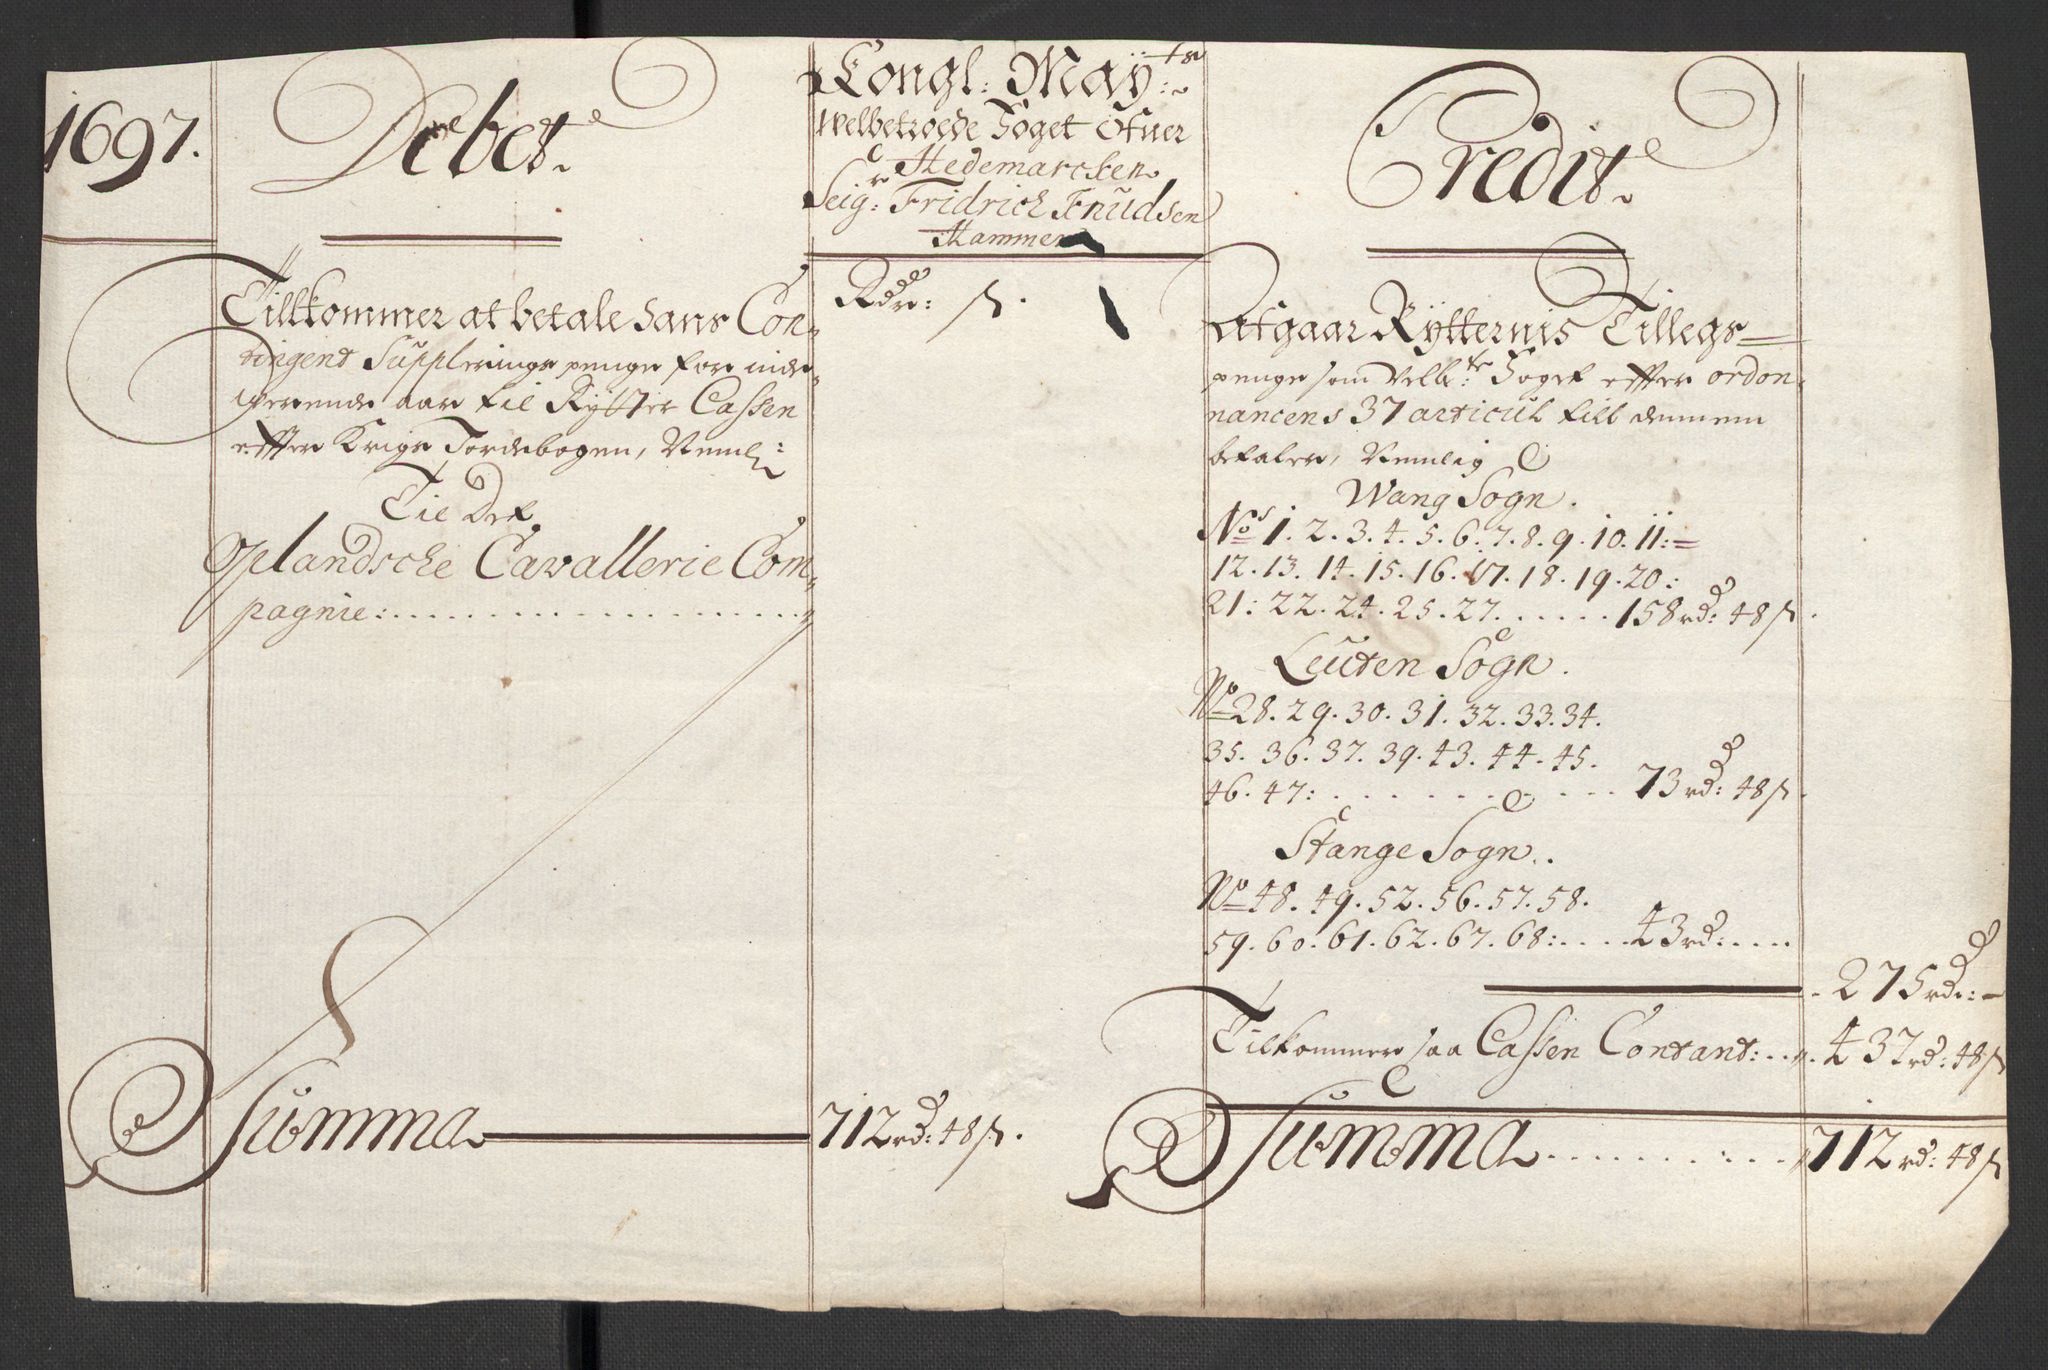 1697.
Debet
Congl: Maÿ:ts
Welbetroede Foget Ofuer
Hedemarcken
Seigr: Fridrich Knudsen
Hammer
Credit
Tillkommer at betale hans Con-
tingent Supplerings penge for inde-
werende aar til Rÿtter Cassen
effter Krigs Jordebogen, Neml:
Til Det
Oplandsche Cavallerie Com-
pagnie:
Rdr: ß.
Summa 712rd: 48ß.
Afgaar Rÿtternis Tillegs
penge som Velb:te Foget effter ordon-
nancens 37 articul till dennem
betaler, Nemlig
Wang Sogn.
Nos 1. 2. 3. 4. 5. 6. 7. 8. 9. 10. 11:
12. 13. 14. 15. 16. 17. 18. 19. 20:
21: 22. 24. 25. 27. 158rd: 48ß.
Leuten Sogn.
No 28. 29. 30. 31. 32. 33. 34.
35. 36. 37. 39. 43. 44. 45.
46. 47: 73rd: 48ß.
Stange Sogn.
No 48. 49. 52. 56. 57. 58.
59. 60. 61. 62. 67. 68: 43rd:
275rd: -
Tilkommer saa Cassen Contant: 437rd: 48ß
Summa 712rd: 48ß